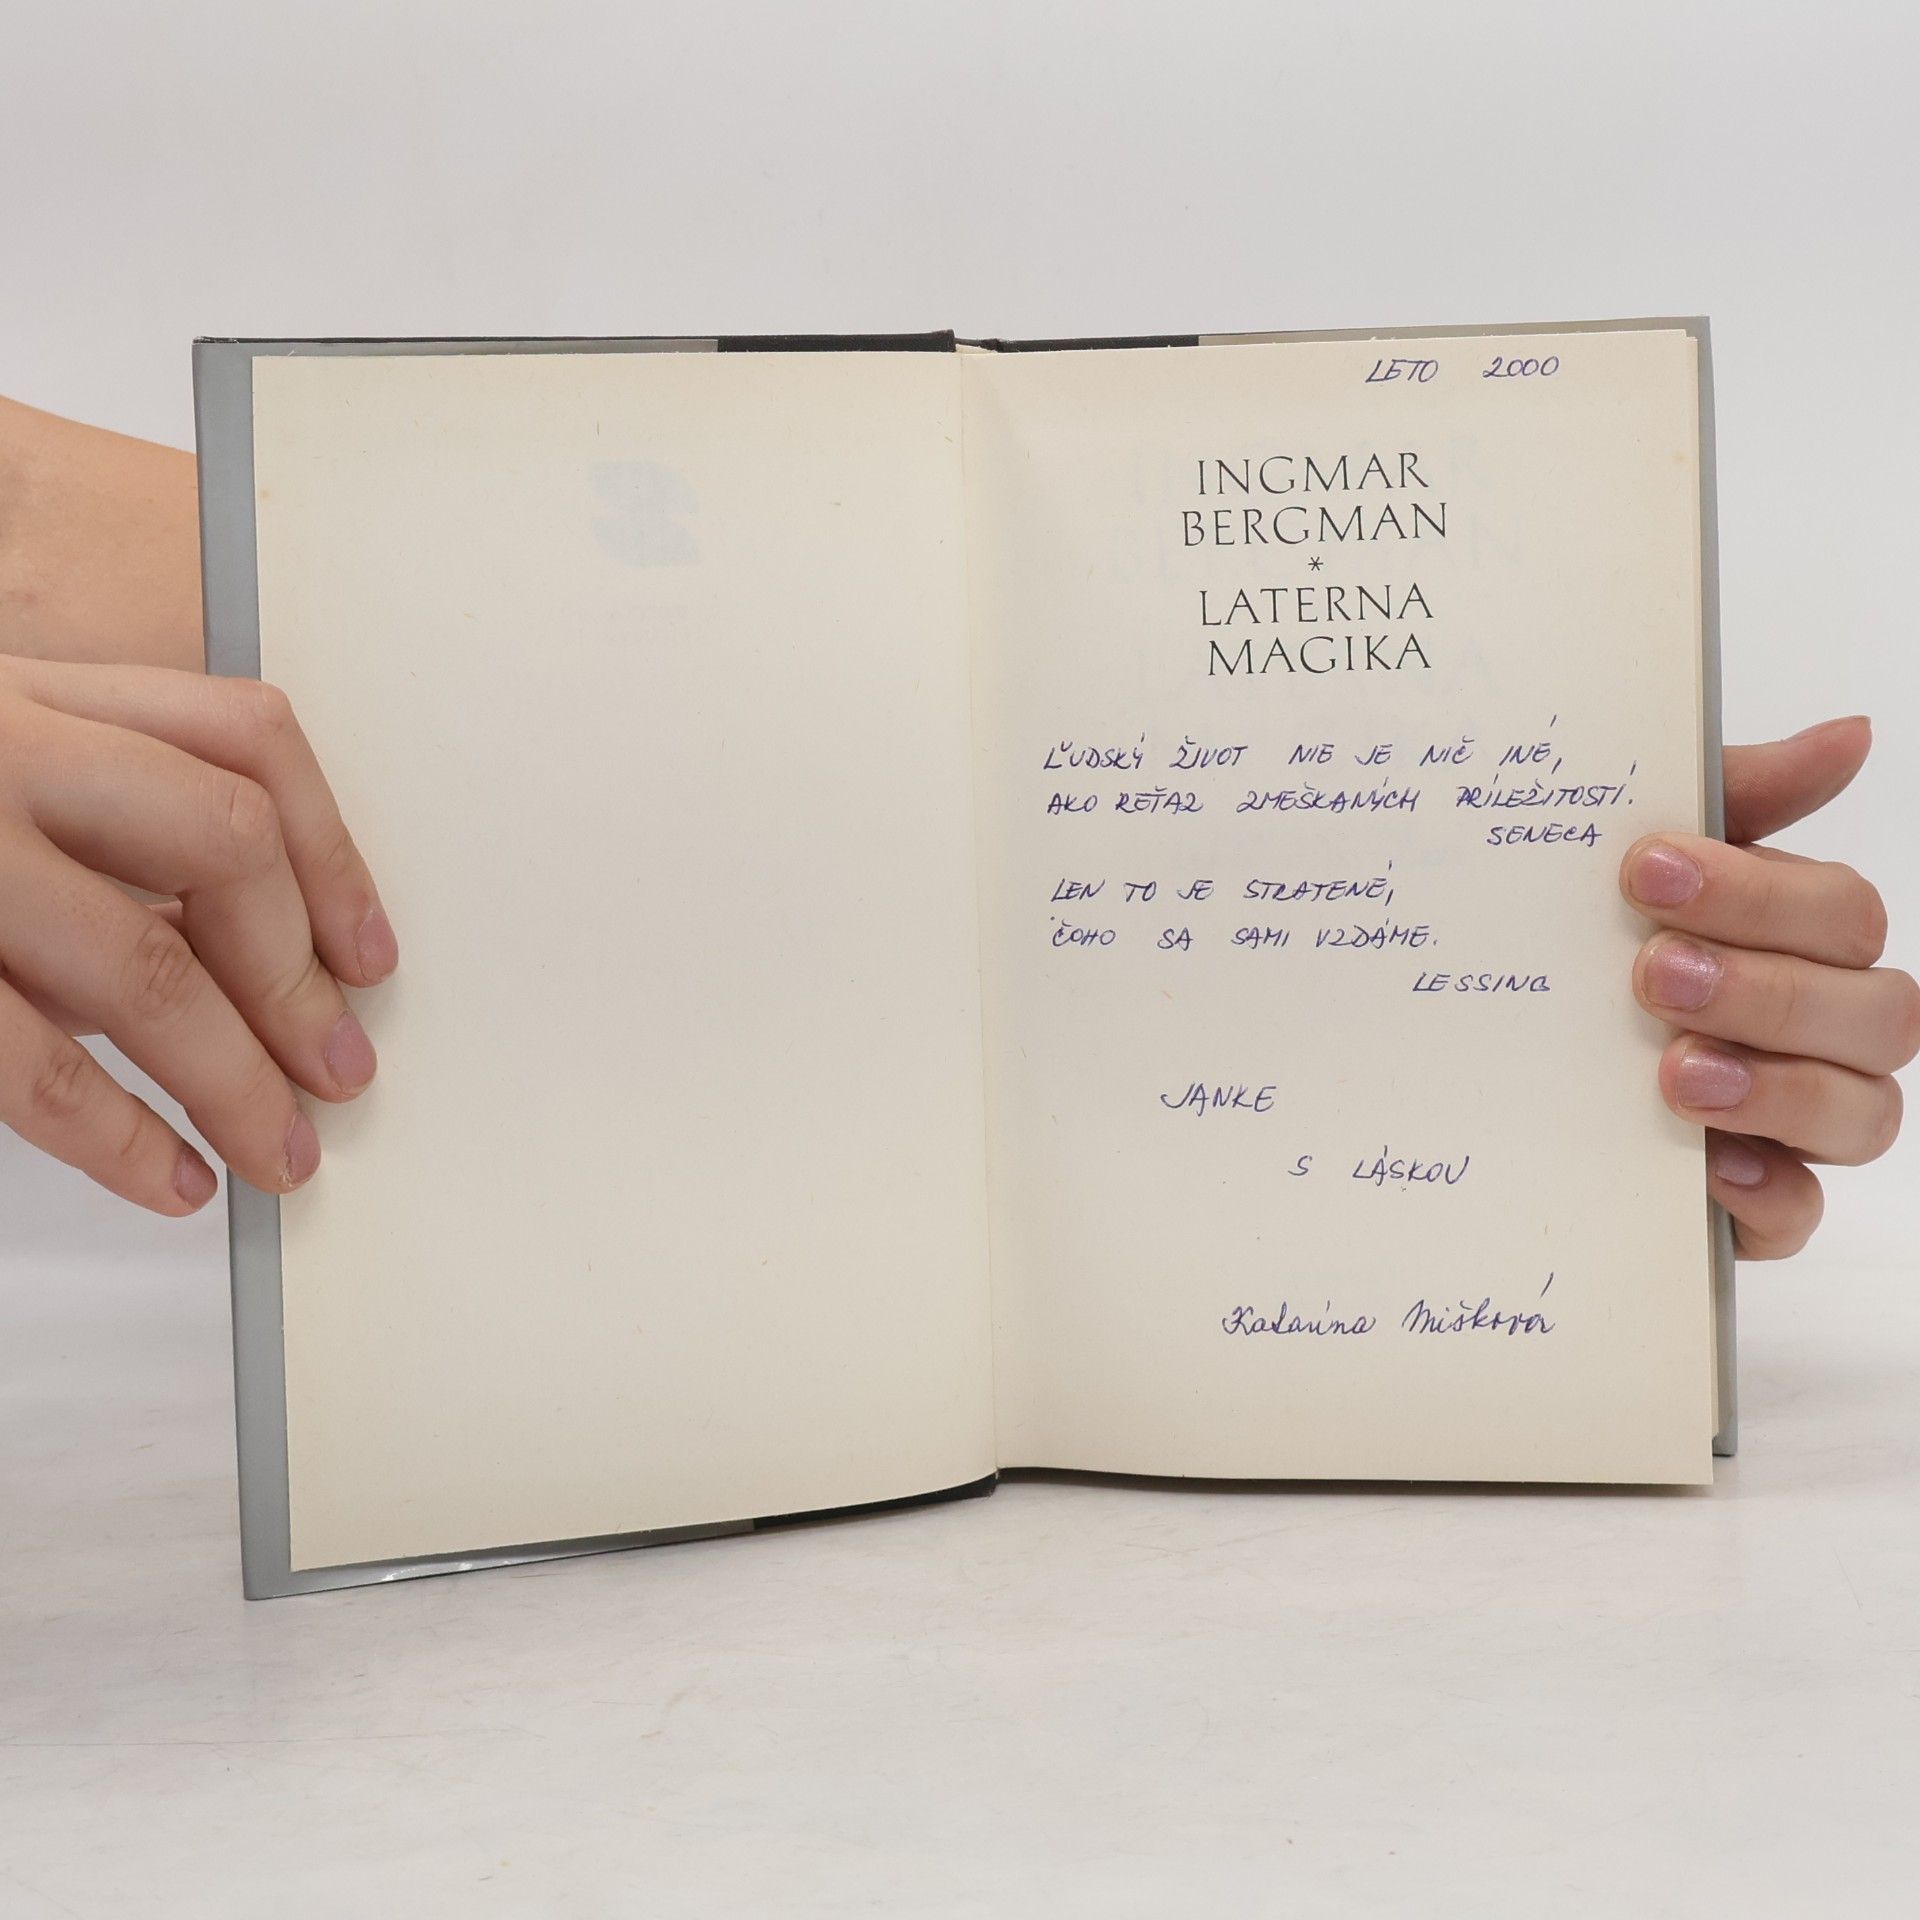 LETO 2000
INGMAR
BERGMAN
*
LATERNA
MAGIKA
ĽUDSKÝ ŽIVOT NIE JE NIČ INÉ,
AKO REŤAZ ZMEŠKANÝCH PRÍLEŽITOSTÍ.
SENECA
LEN TO JE STRATENÉ,
ČOHO SA SAMI VZDÁME.
LESSING
JANKE
S LÁSKOU
Katarína Mišková